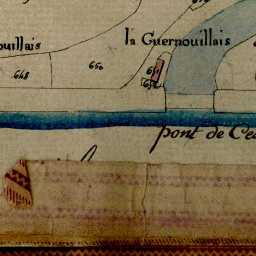 ouillais
la Guernouillais
648
650
pont de Ce